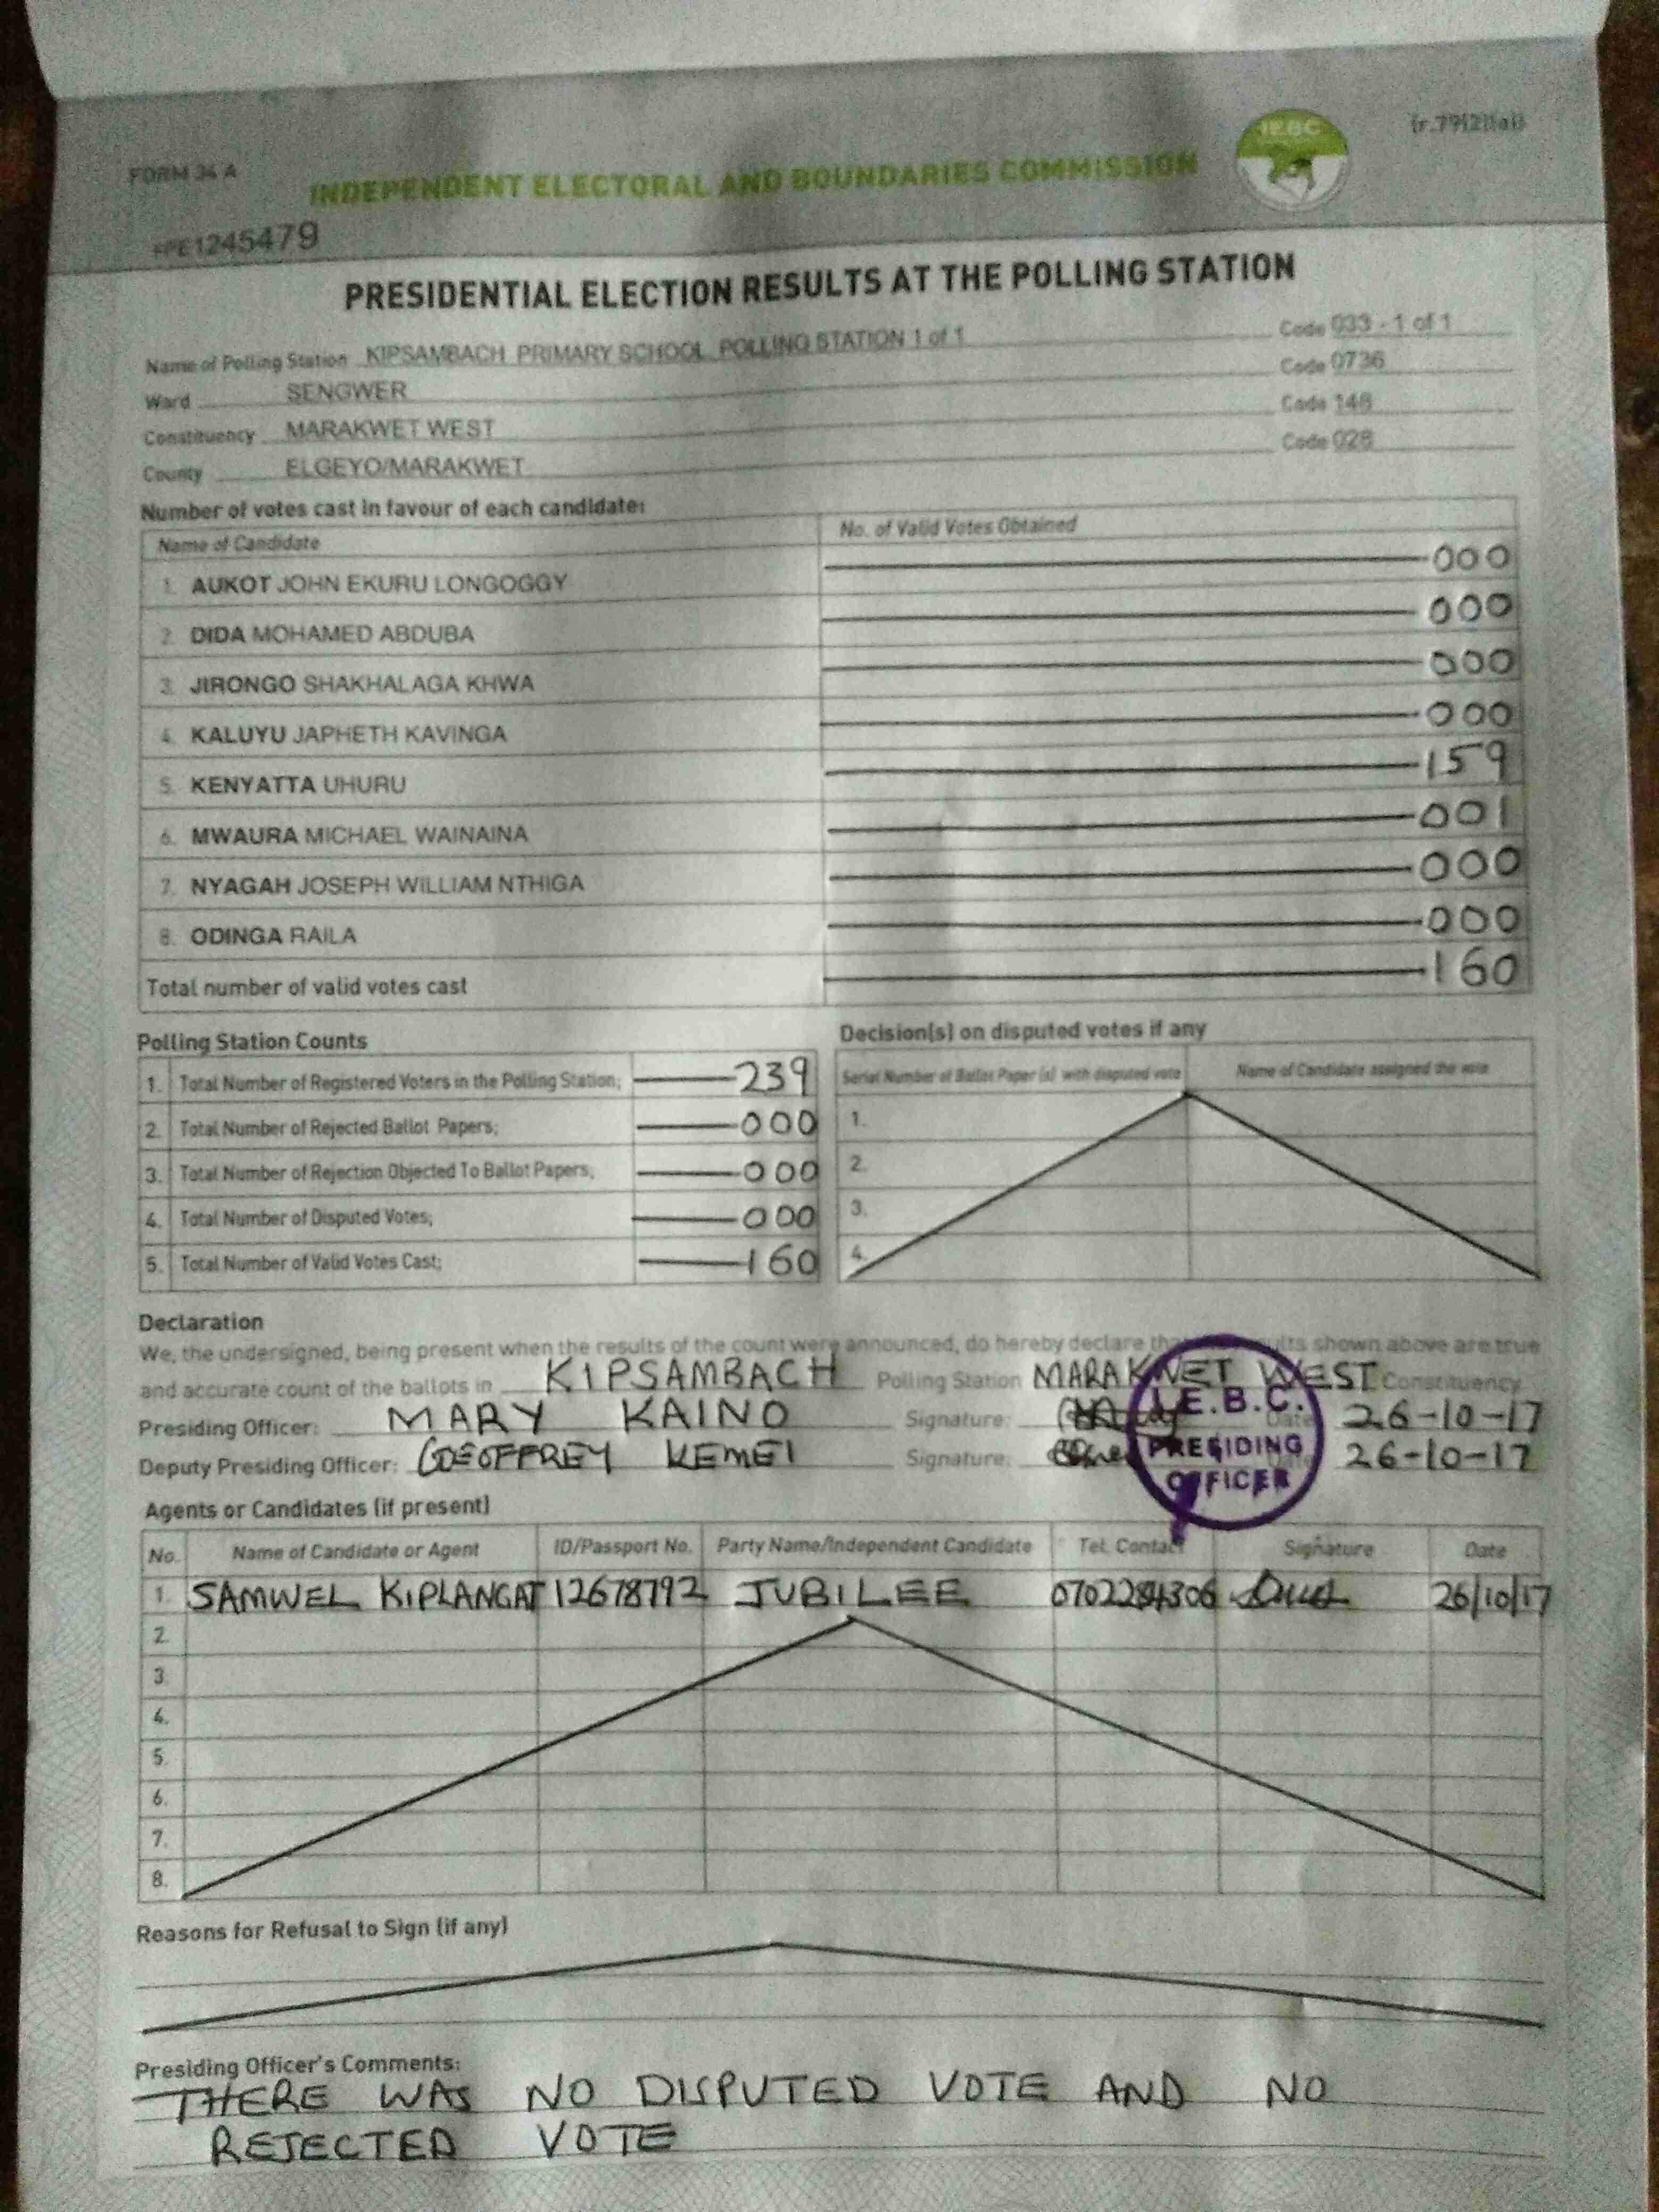 (r.79(2)(a))
FORM 34 A
IEBC
INDEPENDENT ELECTORAL AND BOUNDARIES COMMISSION
1245479
PRESIDENTIAL ELECTION RESULTS AT THE POLLING STATION
Name of Polling Station KIPSAMBACH PRIMARY SCHOOL POLLING STATION 1 of 1 Code 033 - 1 of 1
Ward SENGWER Code 0736
Constituency MARAKWET WEST Code 148
County ELGEYO/MARAKWET Code 028
Number of votes cast in favour of each candidate:
Name of Candidate No. of Valid Votes Obtained
1. AUKOT JOHN EKURU LONGOGGY 000
2. DIDA MOHAMED ABDUBA 000
3. JIRONGO SHAKHALAGA KHWA 000
4. KALUYU JAPHETH KAVINGA 000
5. KENYATTA UHURU 159
6. MWAURA MICHAEL WAINAINA 001
7. NYAGAH JOSEPH WILLIAM NTHIGA 000
8. ODINGA RAILA 000
Total number of valid votes cast 160
Polling Station Counts
1. Total Number of Registered Voters in the Polling Station; 239
2. Total Number of Rejected Ballot Papers; 000
3. Total Number of Rejection Objected To Ballot Papers; 000
4. Total Number of Disputed Votes; 000
5. Total Number of Valid Votes Cast; 160
Decision(s) on disputed votes if any
Serial Number of Ballot Paper (s) with disputed vote Name of Candidate assigned the vote
1.
2.
3.
4.
Declaration
We, the undersigned, being present when the results of the count were announced, do hereby declare shown above are true
and accurate count of the ballots in KIPSAMBACH Polling Station MARAKWET WEST Constituency
Presiding Officer: MARY KAINO Signature: Date 26-10-17
Deputy Presiding Officer: GEOFFREY KEMEI Signature: Date 26-10-17
I.E.B.C.
PRESIDING
OFFICER
Agents or Candidates (if present)
No. Name of Candidate or Agent ID/Passport No. Party Name/Independent Candidate Tel. Contact Signature Date
1. SAMWEL KIPLANGAT 12678792 JUBILEE 26/10/17
2.
3.
4.
5.
6.
7.
8.
Reasons for Refusal to Sign (if any)
Presiding Officer's Comments:
THERE WAS NO DISPUTED VOTE AND NO
REJECTED VOTE